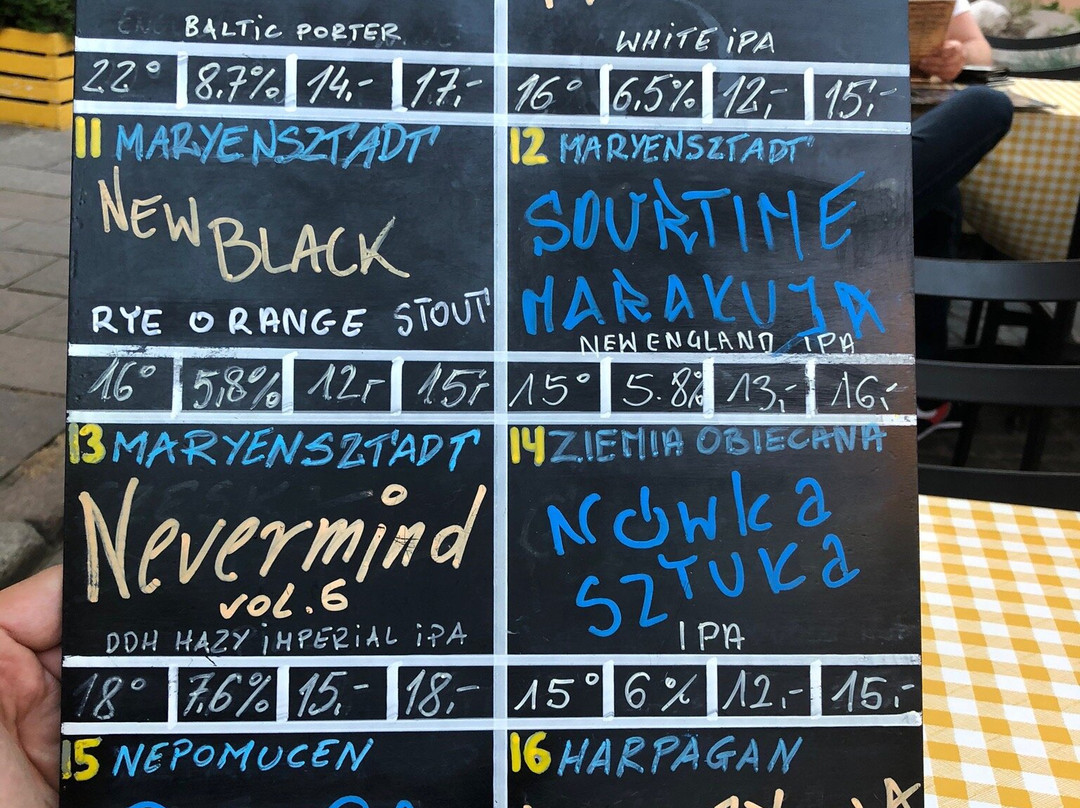 BALTIC PORTER
22° 8.7% 14,- 17,-
WHITE IPA
16° 6,5% 12,- 15,-
11 MARYENSZTADT
NEW
BLACK
RYE ORANGE STOUT
16° 5,8% 12,- 15,-
12 MARYENSZTADT
SOURTIME
MARAKUJA
NEW ENGLAND IPA
15° 5.8% 13,- 16,-
13 MARYENSZTADT
Nevermind
vol.6
DDH HAZY IMPERIAL IPA
18° 7.6% 15,- 18,-
14 ZIEMIA OBIECANA
NÓWKa
SZTUKa
IPA
15° 6% 12,- 15,-
15 NEPOMUCEN
16 HARPAGAN